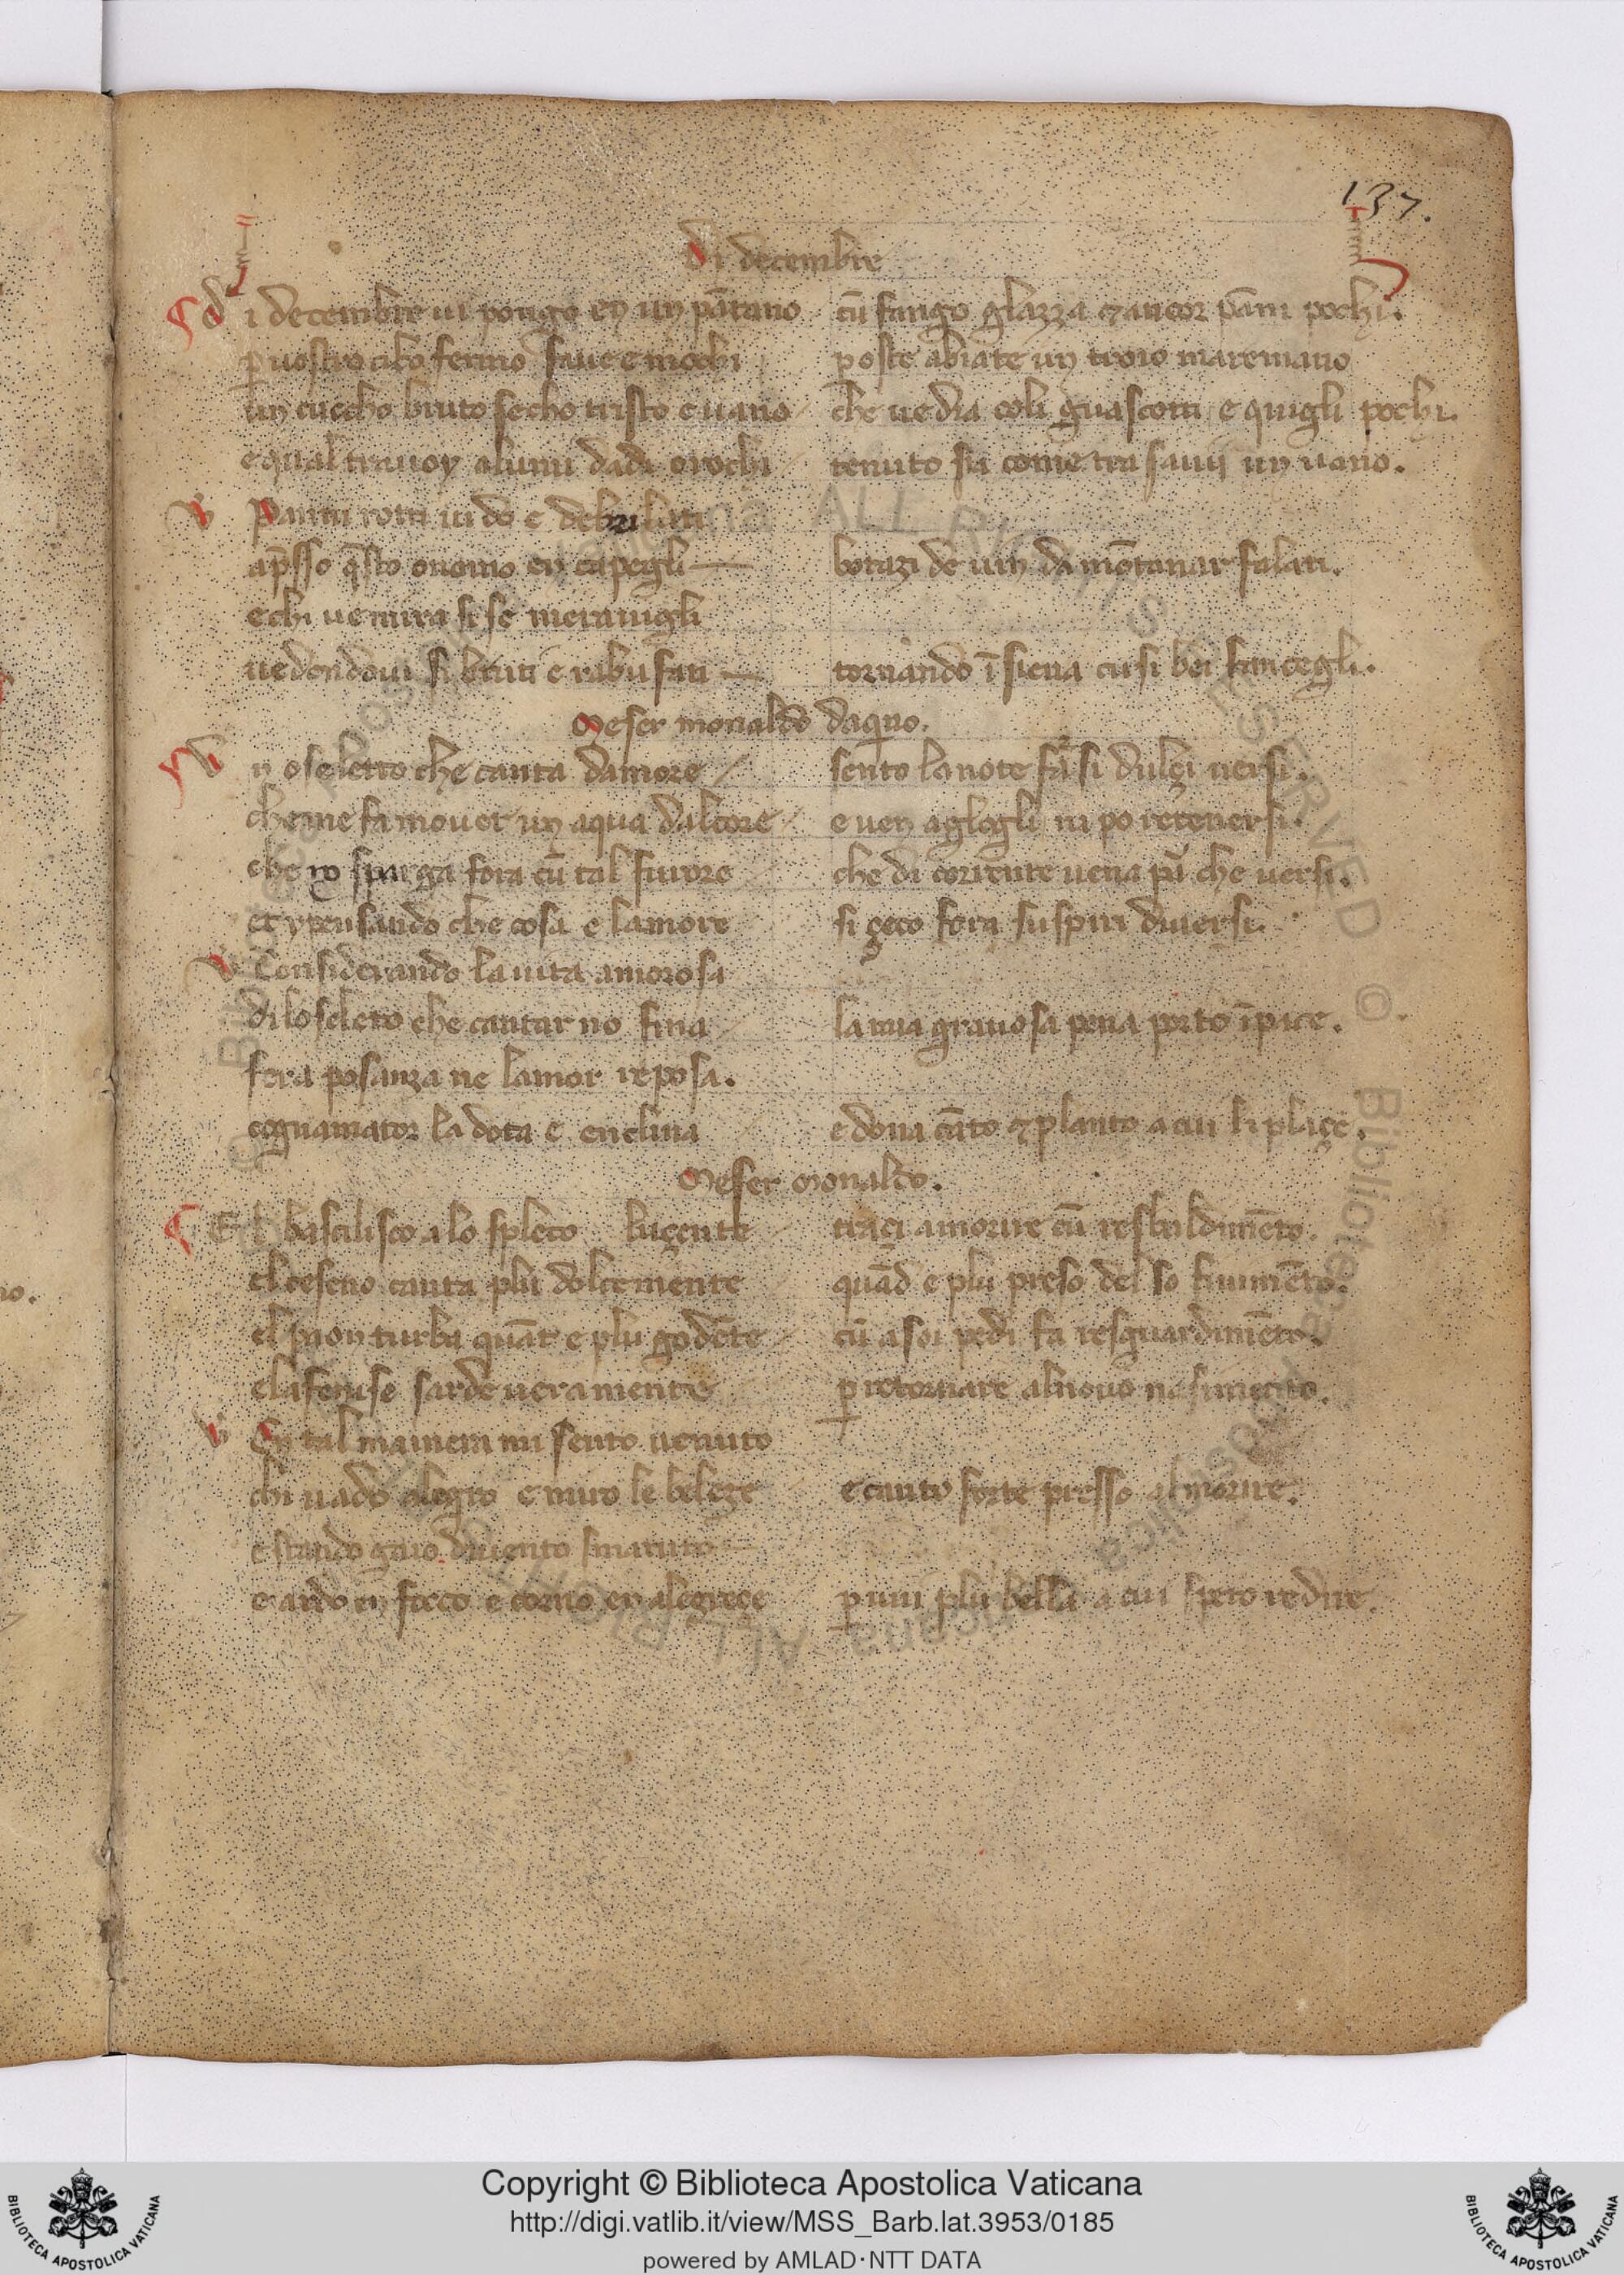 137.
di decembre
di decembre ui pongo en un pãtano cũ fango glazza & ancor pãni pochi.
p uostro cibo fermo faue e mochi p oste abiate un troio maremano
un cuocho bruto secho tristo e uano che ue dia coli guascotti e quigli pochi.
e qual tra uoy a lumi dadi o rochi tenuto sia come tra sauij un uano.
Panni rotti ui do e debrilati
apsso qsto onomo en capegli botazi de uin da mõtanar falati.
e chi ue mira si se merauigli
uedendoui si bruti e rabufati tornando ĩ siena cusi bei fancegli.
Meser monaldo daquno.
Un oseletto che canta damore sento la note far si dulçi uersi.
che me fa mouer un aqua dal core e uen aglogli ni po retenersi.
che no sparga fora cũ tal furore che di corrente uena pũ che uersi.
et y pensando che cosa e lamore si çeto fora suspiri diuersi.
Considerando la uita amorosa
di lo seleto che cantar no fina la mia grauosa pena porto ĩ pace.
fera posanza ne lamor reposa.
cognamator la dota e enclina e dona cãto & planto a cui li plaçe.
Meser monaldo.
El bascilisco a lo spleco luçente traçi a morire cũ resbaldimẽto.
el ceseno canta plu dolcemente quãd e plu preso del so finimẽto.
el paon turba quãt e plu godẽte cũ a soi pedi fa resguardimẽto.
e la fenise sarde ueramente p retornare al nouo nasimento.
En tal mainera mi sento uenuto
chi uado alegro e miro le beleçe e canto forte presso al morire.
e stando gaio diuento smaruto
e ardo in foco e torno en alegreçe p uui plu bella a cui speto redire.
Copyright © Biblioteca Apostolica Vaticana
http://digi.vatlib.it/view/MSS_Barb.lat.3953/0185
powered by AMLAD·NTT DATA
BIBLIOTECA APOSTOLICA VATICANA
BIBLIOTECA APOSTOLICA VATICANA